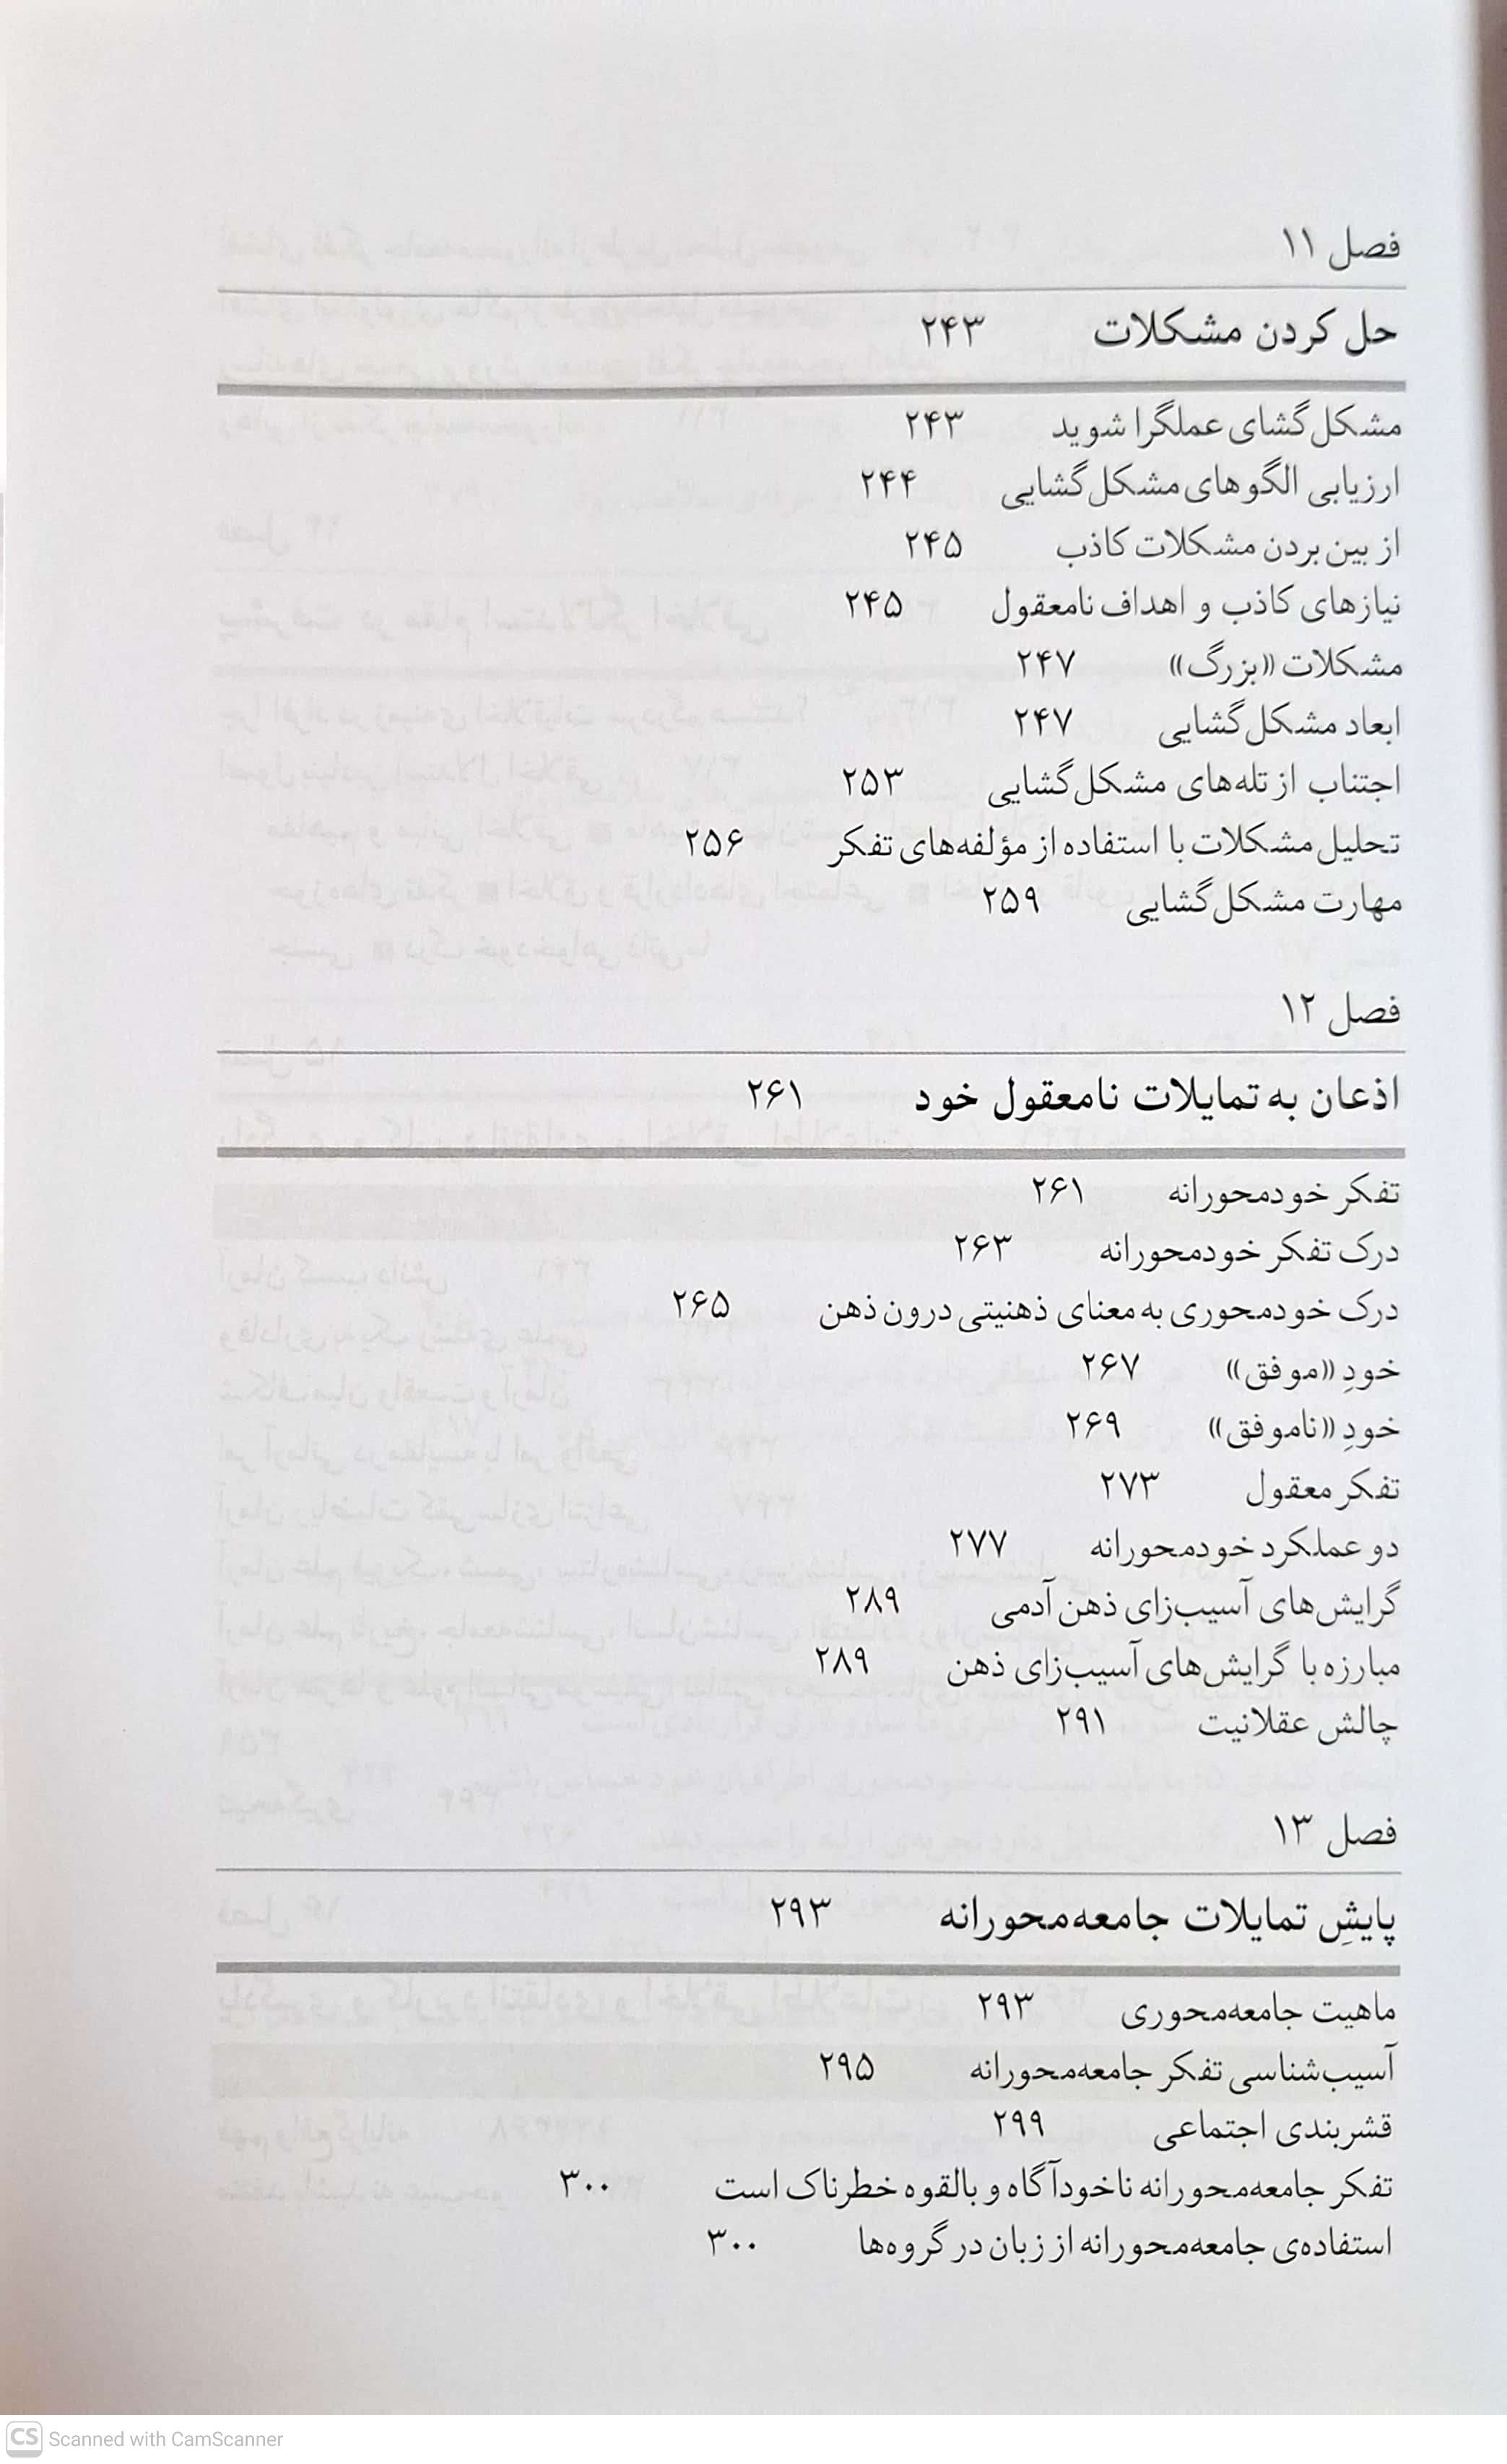 فصل ۱۱
حل کردن مشکلات ۲۴۳
مشکل‌گشای عملگرا شوید ۲۴۳
ارزیابی الگوهای مشکل‌گشایی ۲۴۴
از بین بردن مشکلات کاذب ۲۴۵
نیازهای کاذب و اهداف نامعقول ۲۴۵
مشکلات «بزرگ» ۲۴۷
ابعاد مشکل‌گشایی ۲۴۷
اجتناب از تله‌های مشکل‌گشایی ۲۵۳
تحلیل مشکلات با استفاده از مؤلفه‌های تفکر ۲۵۶
مهارت مشکل‌گشایی ۲۵۹
فصل ۱۲
اذعان به تمایلات نامعقول خود ۲۶۱
تفکر خودمحورانه ۲۶۱
درک تفکر خودمحورانه ۲۶۳
درک خودمحوری به معنای ذهنیتی درون ذهن ۲۶۵
خودِ «موفق» ۲۶۷
خودِ «ناموفق» ۲۶۹
تفکر معقول ۲۷۳
دو عملکرد خودمحورانه ۲۷۷
گرایش‌های آسیب‌زای ذهن آدمی ۲۸۹
مبارزه با گرایش‌های آسیب‌زای ذهن ۲۸۹
چالش عقلانیت ۲۹۱
فصل ۱۳
پایشِ تمایلات جامعه‌محورانه ۲۹۳
ماهیت جامعه‌محوری ۲۹۳
آسیب‌شناسی تفکر جامعه‌محورانه ۲۹۵
قشربندی اجتماعی ۲۹۹
تفکر جامعه‌محورانه ناخودآگاه و بالقوه خطرناک است ۳۰۰
استفاده‌ی جامعه‌محورانه از زبان در گروه‌ها ۳۰۰
CS Scanned with CamScanner